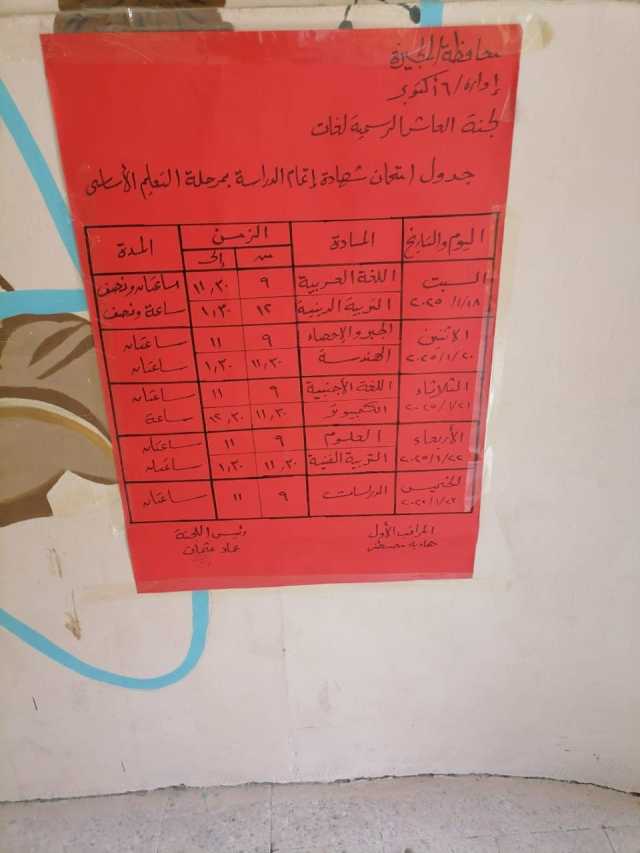 محافظة الجيزة
إدارة / ٦ أكتوبر
لجنة العاشر الرسمية لغات
جدول امتحان شهادة إتمام الدراسة بمرحلة التعليم الأساسى
اليوم والتاريخ المادة الزمن المدة
من إلى
السبت اللغة العربية ٩ ١١,٣٠ ساعتان ونصف
٢٠٢٥/١/١٨ التربية الدينية ١٢ ١,٣٠ ساعة ونصف
الاثنين الجبر والإحصاء ٩ ١١ ساعتان
٢٠٢٥/١/٢٠ الهندسة ١١,٣٠ ١,٣٠ ساعتان
الثلاثاء اللغة الأجنبية ٩ ١١ ساعتان
٢٠٢٥/١/٢١ الكمبيوتر ١١,٣٠ ١٢,٣٠ ساعة
الأربعاء العلوم ٩ ١١ ساعتان
٢٠٢٥/١/٢٢ التربية الفنية ١١,٣٠ ١,٣٠ ساعتان
الخميس الدراسات ٩ ١١ ساعتان
٢٠٢٥/١/٢٣
المراقب الأول رئيس اللجنة
عماد